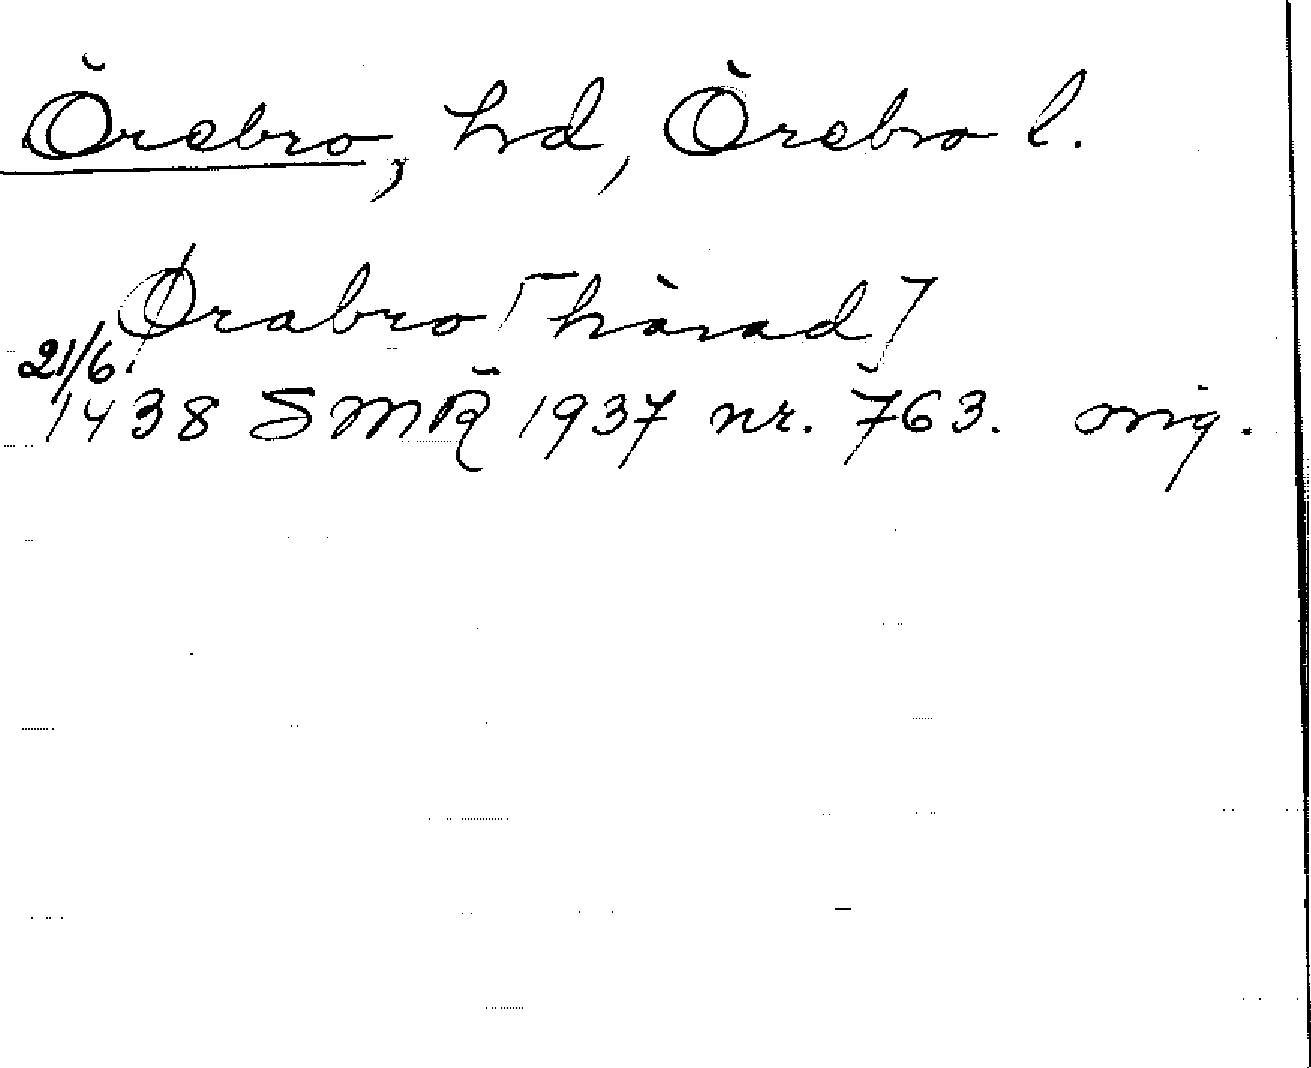 Örebro, hd, Örebro l.
Ørabro [härad]
21/6
1438 SMR 1937 nr. 763. orig.